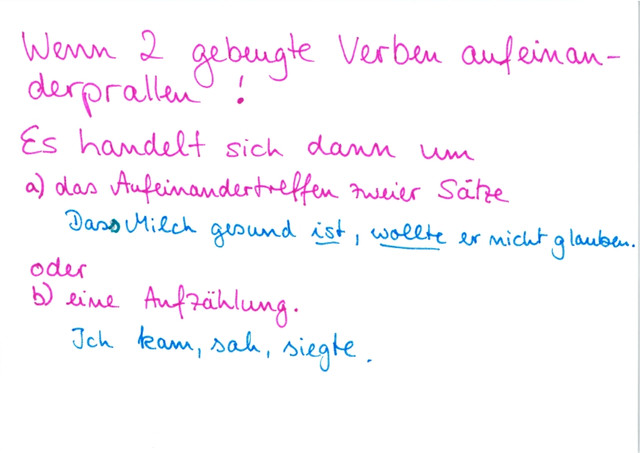 Wenn 2 gebeugte Verben aufeinan-
derprallen !
Es handelt sich dann um
a) das Aufeinandertreffen zweier Sätze
Dass Milch gesund ist, wollte er nicht glauben.
oder
b) eine Aufzählung.
Ich kam, sah, siegte.